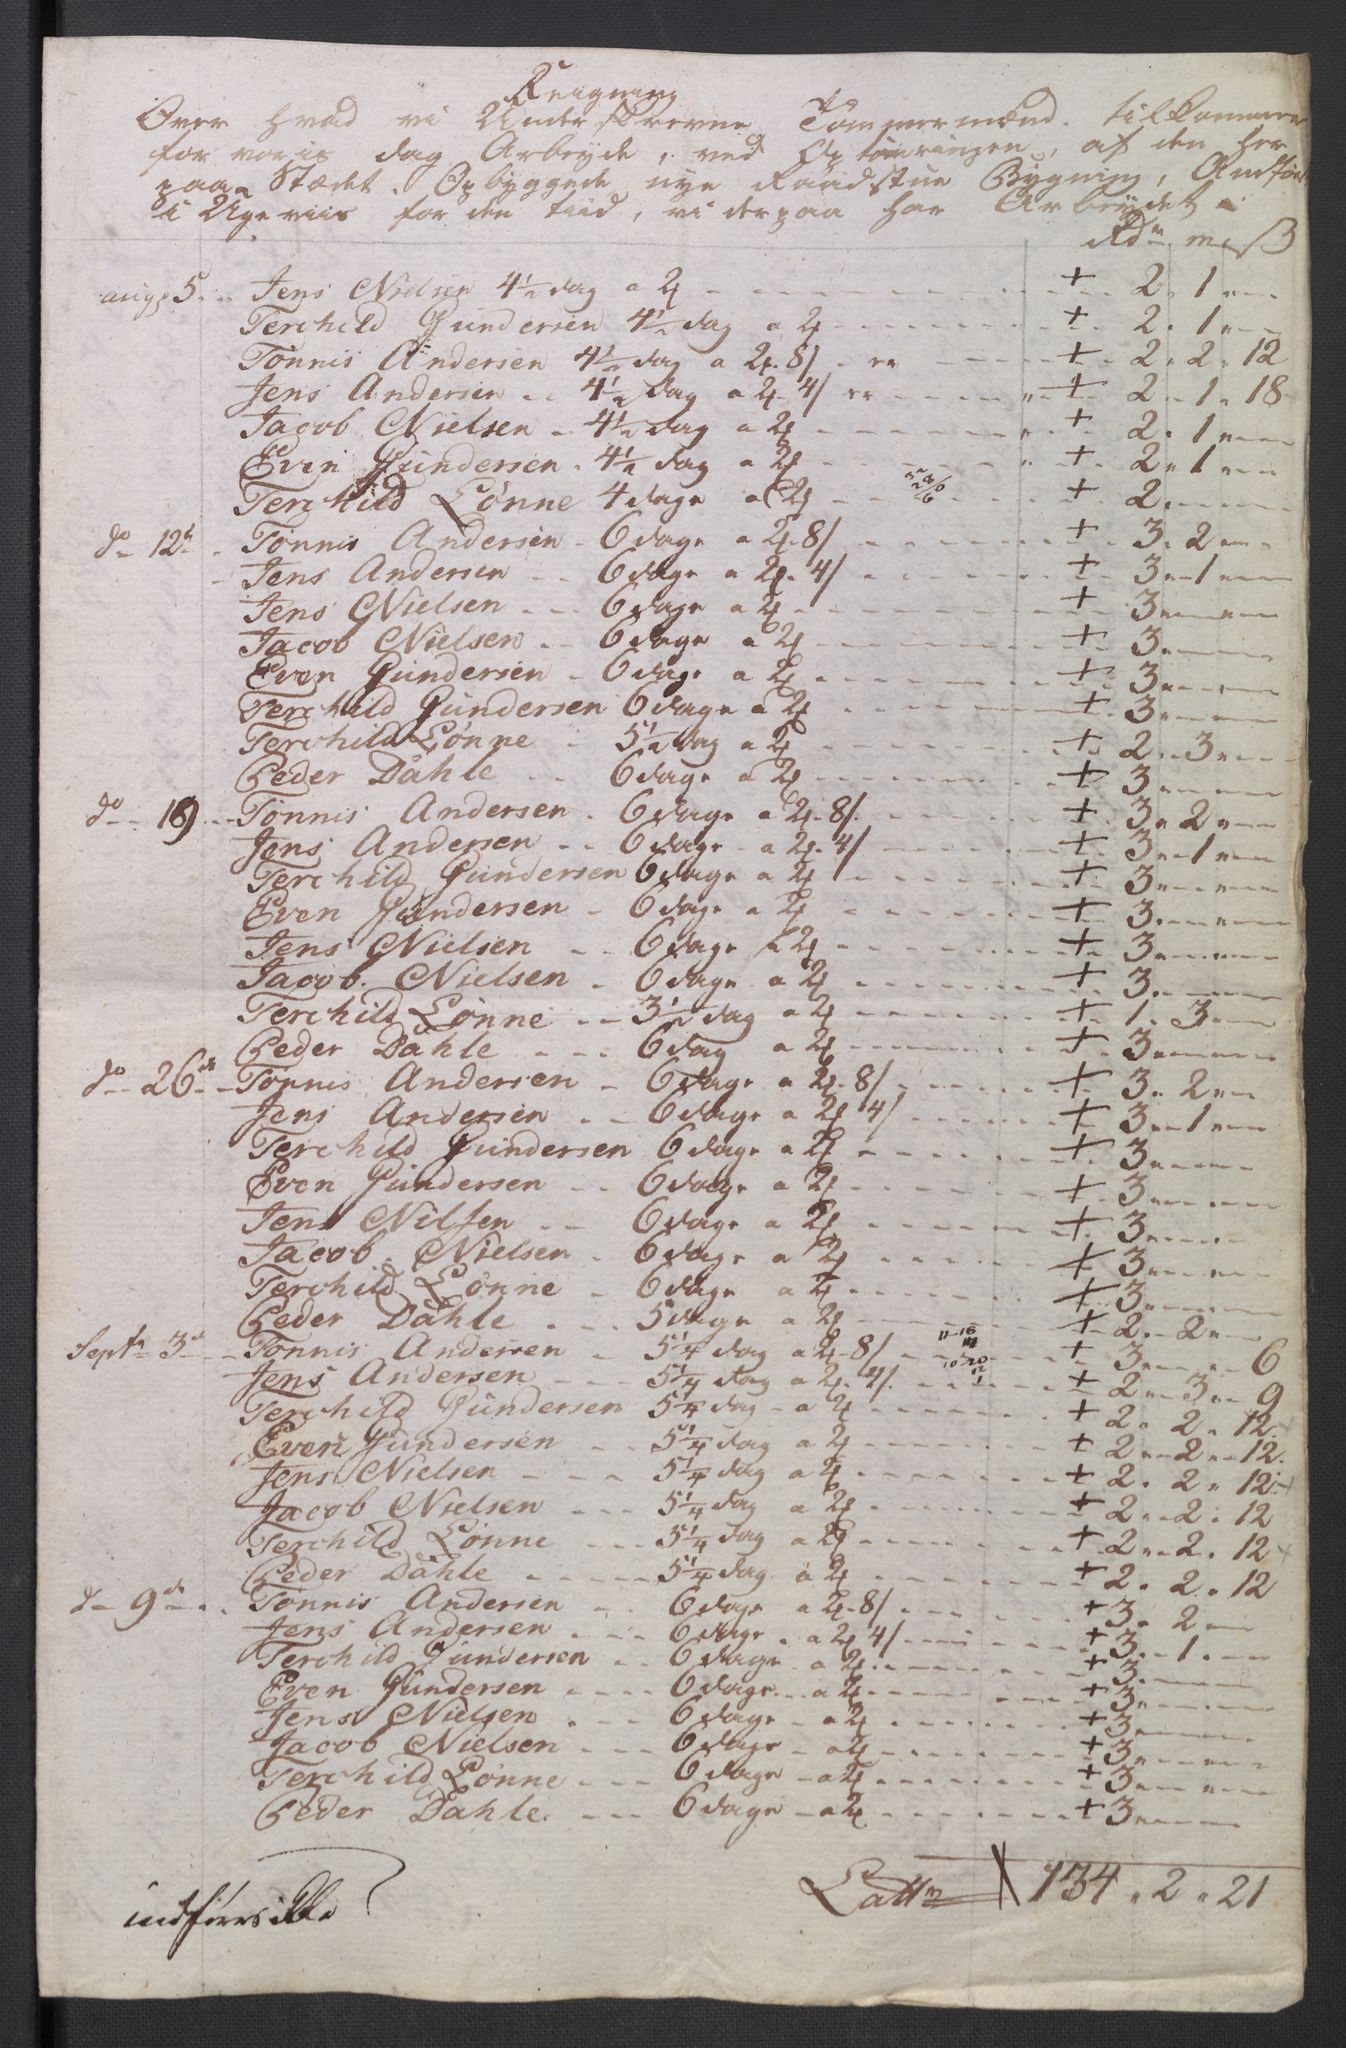 Reigning
Over hvad vi Underskrevne Tømmermænd tilkommer
for voris dag Arbeyde, ved Optømringen, af den her
paa Stædet Opbyggede nye Raadstue Bygning, Andført
i Ugeviis for den tiid, vi derpaa har Arbeydet
Rdr m ß
aug 5 Jens Nielsen 4½ dag a 2 + 2 1
Terchild Gundersen 4½ dag a 2 + 2 1
Tönnis Andersen 4½ dag a 2 8/ + 2 2 12
Jens Andersen 4½ dag a 2 4/ + 2 1 18
Jacob Nielsen 4½ dag a 2 + 2 1
Even Gundersen 4½ dag a 2 + 2 1
Terchild Lönne 4 dage a 2 + 2
do 12t Tönnis Andersen 6 dage a 2 8/ + 3 2
Jens Andersen 6 dage a 2 4/ + 3 1
Jens Nielsen 6 dage a 2 + 3
Jacob Nielsen 6 dage a 2 + 3
Even Gundersen 6 dage a 2 + 3
Terchild Gundersen 6 dage a 2 + 3
Terchild Lönne 5½ dag a 2 + 2 3
Peder Dahle 6 dage a 2 + 3
do 19 Tönnis Andersen 6 dage a 2 8/ + 3 2
Jens Andersen 6 dage a 2 4/ + 3 1
Terchild Gundersen 6 dage a 2 + 3
Even Gundersen 6 dage a 2 + 3
Jens Nielsen 6 dage a 2 + 3
Jacob Nielsen 6 dage a 2 + 3
Terchild Lönne 3½ dag a 2 + 1 3
Peder Dahle 6 dag a 2 + 3
do 26de Tönnis Andersen 6 dage a 2 8/ + 3 2
Jens Andersen 6 dage a 2 4/ + 3 1
Terchild Gundersen 6 dage a 2 + 3
Even Gundersen 6 dage a 2 + 3
Jens Nilsen 6 dage a 2 + 3
Jacob Nielsen 6 dage a 2 + 3
Terchild Lönne 6 dage a 2 + 3
Peder Dahle 5 dage a 2 + 2 2
Septr 3de Tönnis Andersen 5¼ dag a 2 8/ + 3 6
Jens Andersen 5¼ dag a 2 4/ + 2 3 9
Terchild Gundersen 5¼ dag a 2 + 2 2 12
Even Gundersen 5¼ dag a 2 + 2 2 12
Jens Nielsen 5¼ dag a 2 + 2 2 12
Jacob Nielsen 5¼ dag a 2 + 2 2 12
Terchild Lönne 5¼ dag a 2 + 2 2 12
Peder Dahle 5¼ dag a 2 + 2 2 12
do 9de Tönnis Andersen 6 dage a 2 8/ + 3 2
Jens Andersen 6 dage a 2 4/ + 3 1
Terchild Gundersen 6 dage a 2 + 3
Even Gundersen 6 dage a 2 + 3
Jens Nielsen 6 dage a 2 + 3
Jacob Nielsen 6 dage a 2 + 3
Terchild Lönne 6 dage a 2 + 3
Peder Dahle 6 dage a 2 + 3
Latt 134 2 21
indføres ikke